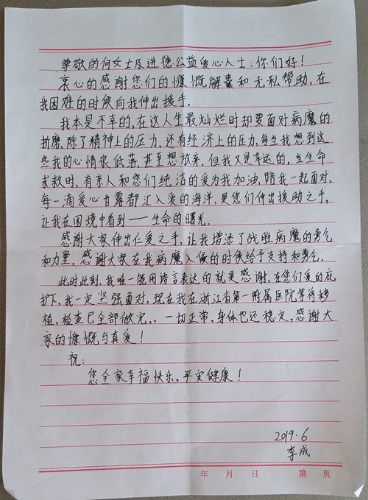 尊敬的何女士及进德公益爱心人士:你们好!
衷心的感谢您们的慷慨解囊和无私帮助,在
我困难的时候向我伸出援手。
我本是不幸的,在这人生最灿烂时却要面对病魔的
折磨,除了精神上的压力,还有经济上的压力,每当我想到这
些我的心情很低落,甚至想放弃,但我又是幸运的,当生命
求救时,有亲人和您们纯洁的爱为我加油,陪我一起面对,
每一滴爱心甘露都汇入爱的海洋,是您们伸出援助之手,
让我在困境中看到一一生命的曙光。
感谢大家伸出仁爱之手,让我增添了战胜病魔的勇气
和力量,感谢大家在我病魔入侵的时候给予支持和勇气。
此时此刻,我唯一能用语言表达的就是感谢,在您们爱的
扩下,我一定坚强面对,现在我在浙江省第一附属医院等待移
植,检查已全部做完,,一切正常,身体也还稳定,感谢大
家的慷慨与真爱!
祝:
您全家幸福快乐,平安健康!
2019.6
李成
年 月 日 第 页